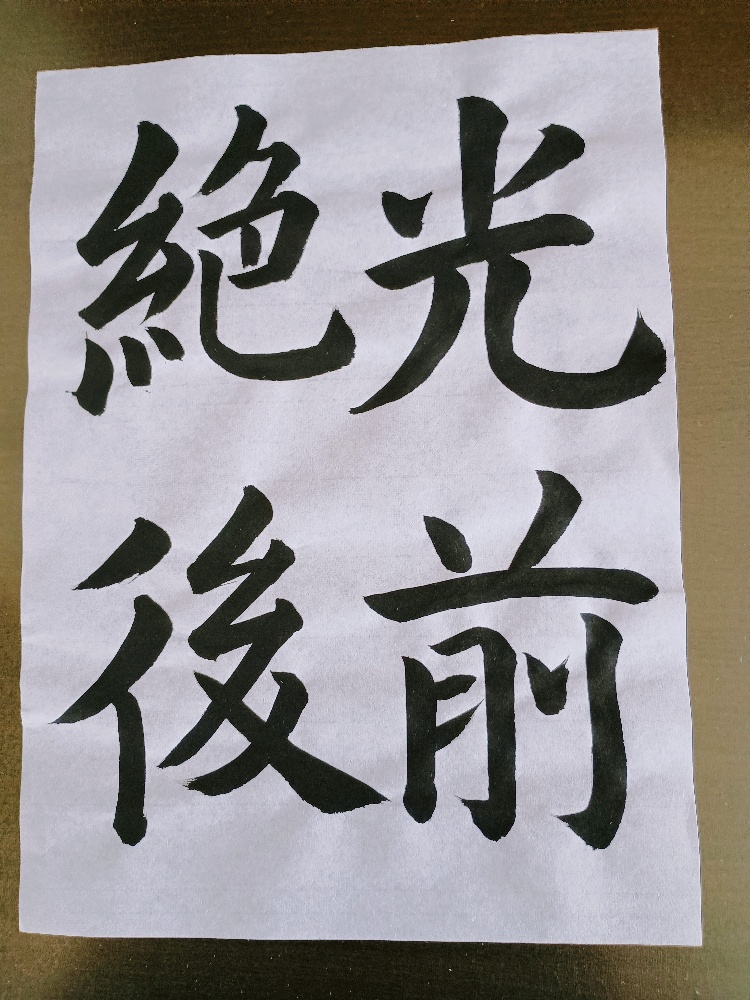 光前
絶後